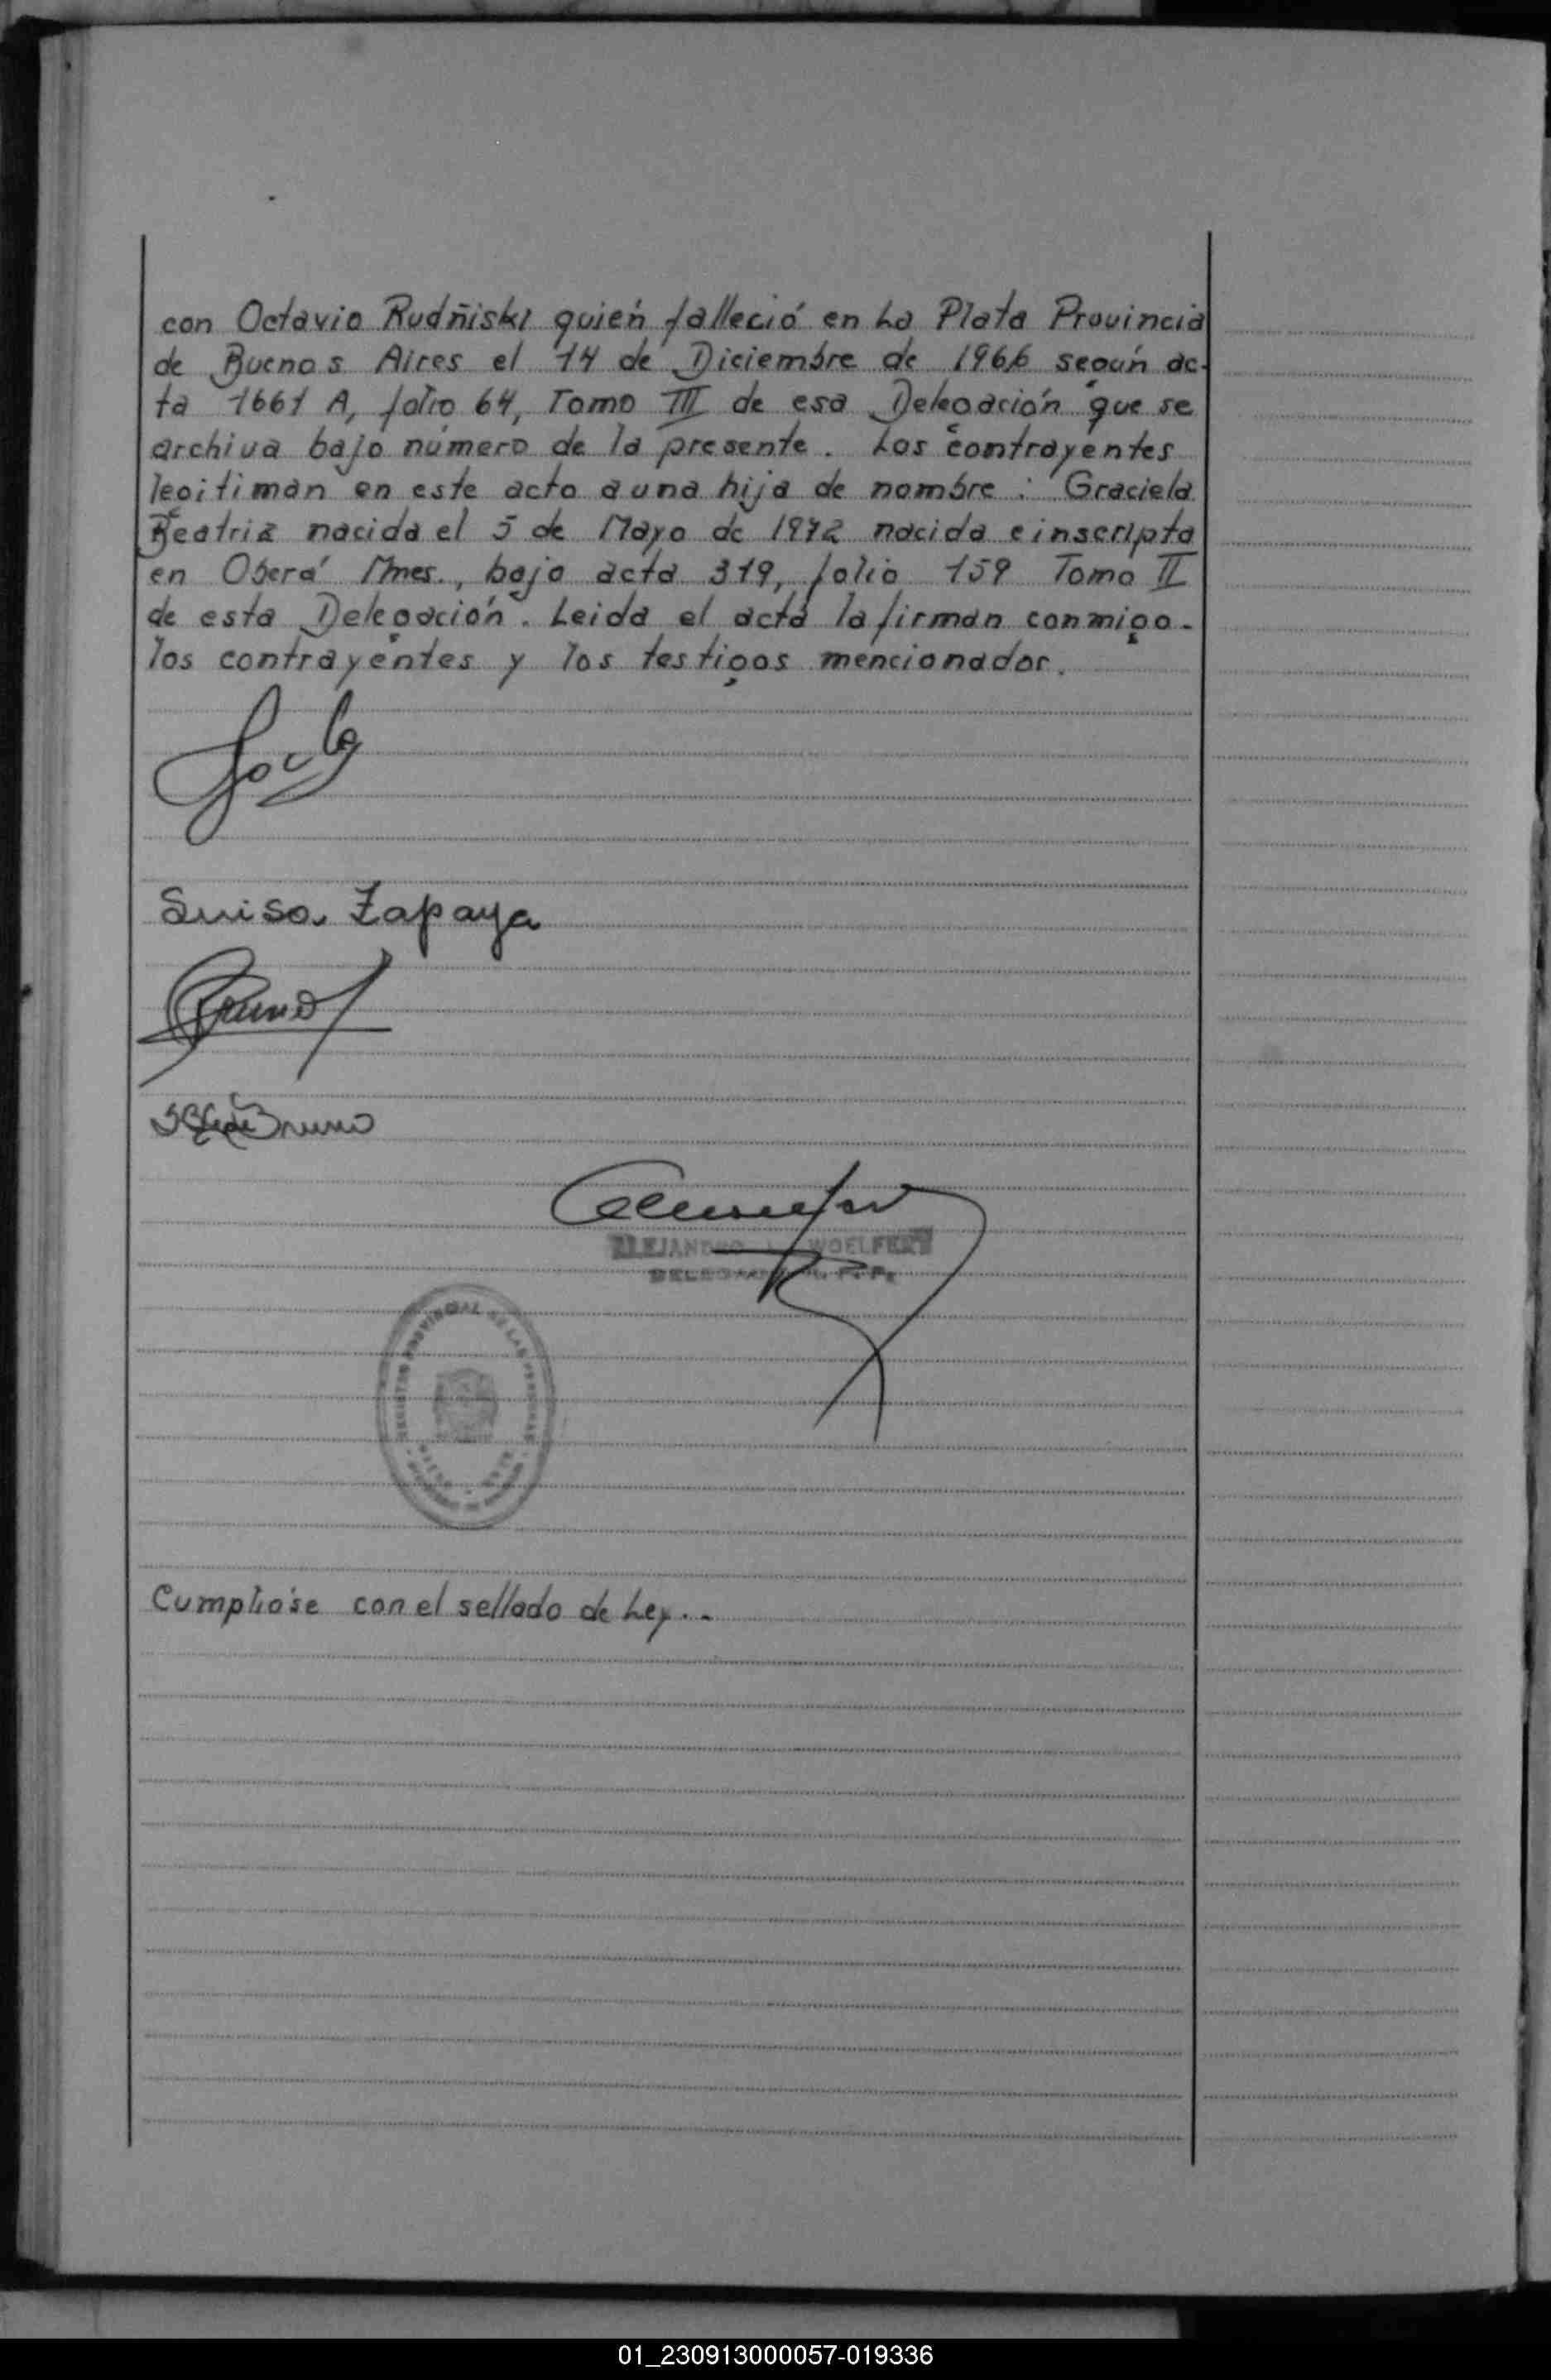 con Octavio Rudñiski quién falleció en La Plata Provincia
de Buenos Aires el 14 de Diciembre de 1966 según ac-
ta 1661 A, folio 64, Tomo III de esa Delegación que se
archiva bajo número de la presente. Los contrayentes
legitiman en este acto a una hija de nombre: Graciela
Beatriz nacida el 5 de Mayo de 1972 nacida e inscripta
en Oberá Mnes., bajo acta 319, folio 159 Tomo II
de esta Delegación. Leida el acta la firman conmigo.
los contrayentes y los testigos mencionados.
Luisa Zapaya
Bruno
Bruno
ALEJANDRO WOELFERT
REGISTRO PROVINCIAL DE LAS PERSONAS
Cumplióse con el sellado de Ley..
01_230913000057-019336